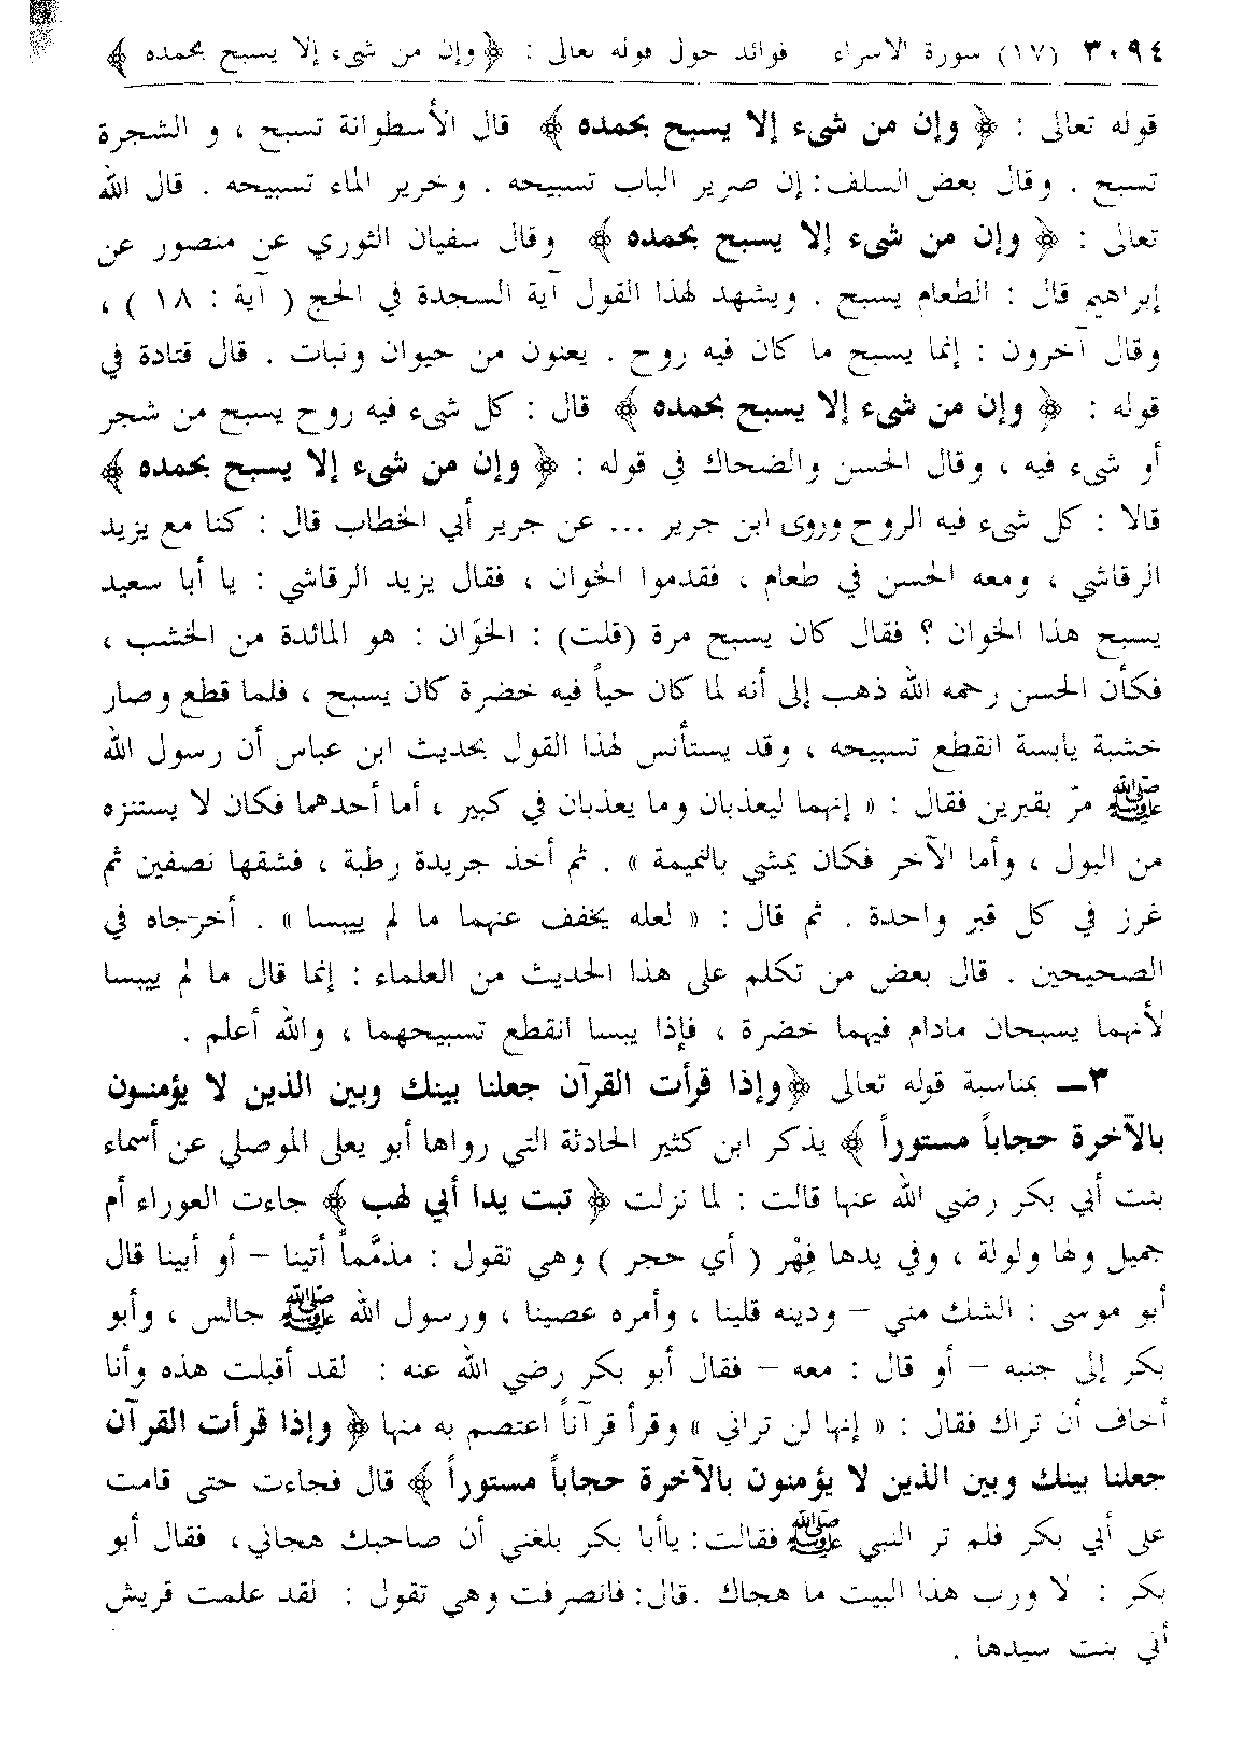 ٣٠٩٤ (١٧) سورة الاسراء فوائد حول قوله تعالى : ﴿ وإن من شيء إلا يسبح بحمده ﴾
قوله تعالى : ﴿ وإن من شيء إلا يسبح بحمده ﴾ قال الأسطوانة تسبح ، و الشجرة
تسبح . وقال بعض السلف : إن صرير الباب تسبيحه . وخرير الماء تسبيحه . قال الله
تعالى : ﴿ وإن من شيء إلا يسبح بحمده ﴾ وقال سفيان الثوري عن منصور عن
إبراهيم قال : الطعام يسبح . ويشهد لهذا القول آية السجدة في الحج ( آية : ١٨ ) ،
وقال آخرون : إنما يسبح ما كان فيه روح . يعنون من حيوان ونبات . قال قتادة في
قوله : ﴿ وإن من شيء إلا يسبح بحمده ﴾ قال : كل شيء فيه روح يسبح من شجر
أو شيء فيه ، وقال الحسن والضحاك في قوله : ﴿ وإن من شيء إلا يسبح بحمده ﴾
قالا : كل شيء فيه الروح وروى ابن جرير ... عن جرير أبي الخطاب قال : كنا مع يزيد
الرقاشي ، ومعه الحسن في طعام ، فقدموا الخوان ، فقال يزيد الرقاشي : يا أبا سعيد
يسبح هذا الخوان ؟ فقال كان يسبح مرة (قلت) : الخوَان : هو المائدة من الخشب ،
فكأن الحسن رحمه الله ذهب إلى أنه لما كان حياً فيه خضرة كان يسبح ، فلما قطع وصار
خشبة يابسة انقطع تسبيحه ، وقد يستأنس لهذا القول بحديث ابن عباس أن رسول الله
ﷺ مرّ بقبرين فقال : « إنهما ليعذبان وما يعذبان في كبير ، أما أحدهما فكان لا يستنزه
من البول ، وأما الآخر فكان يمشي بالنميمة » . ثم أخذ جريدة رطبة ، فشقها نصفين ثم
غرز في كل قبر واحدة . ثم قال : « لعله يخفف عنهما ما لم ييبسا » . أخرجاه في
الصحيحين . قال بعض من تكلم على هذا الحديث من العلماء : إنما قال ما لم ييبسا
لأنهما يسبحان مادام فيهما خضرة ، فإذا يبسا انقطع تسبيحهما ، والله أعلم .
٣ـ بمناسبة قوله تعالى ﴿وإذا قرأت القرآن جعلنا بينك وبين الذين لا يؤمنون
بالآخرة حجاباً مستوراً ﴾ يذكر ابن كثير الحادثة التي رواها أبو يعلى الموصلي عن أسماء
بنت أبي بكر رضي الله عنها قالت : لما نزلت ﴿ تبت يدا أبي لهب ﴾ جاءت العوراء أم
جميل ولها ولولة ، وفي يدها فِهْر ( أي حجر ) وهي تقول : مذمَّماً أتينا – أو أبينا قال
أبو موسى : الشك مني – ودينه قلينا ، وأمره عصينا ، ورسول الله ﷺ جالس ، وأبو
بكر إلى جنبه – أو قال : معه – فقال أبو بكر رضي الله عنه : لقد أقبلت هذه وأنا
أخاف أن تراك فقال : « إنها لن تراني » وقرأ قرآناً اعتصم به منها ﴿ وإذا قرأت القرآن
جعلنا بينك وبين الذين لا يؤمنون بالآخرة حجاباً مستوراً ﴾ قال فجاءت حتى قامت
على أبي بكر فلم تر النبي ﷺ فقالت : ياأبا بكر بلغني أن صاحبك هجاني ، فقال أبو
بكر : لا ورب هذا البيت ما هجاك . قال : فانصرفت وهي تقول : لقد علمت قريش
أني بنت سيدها .